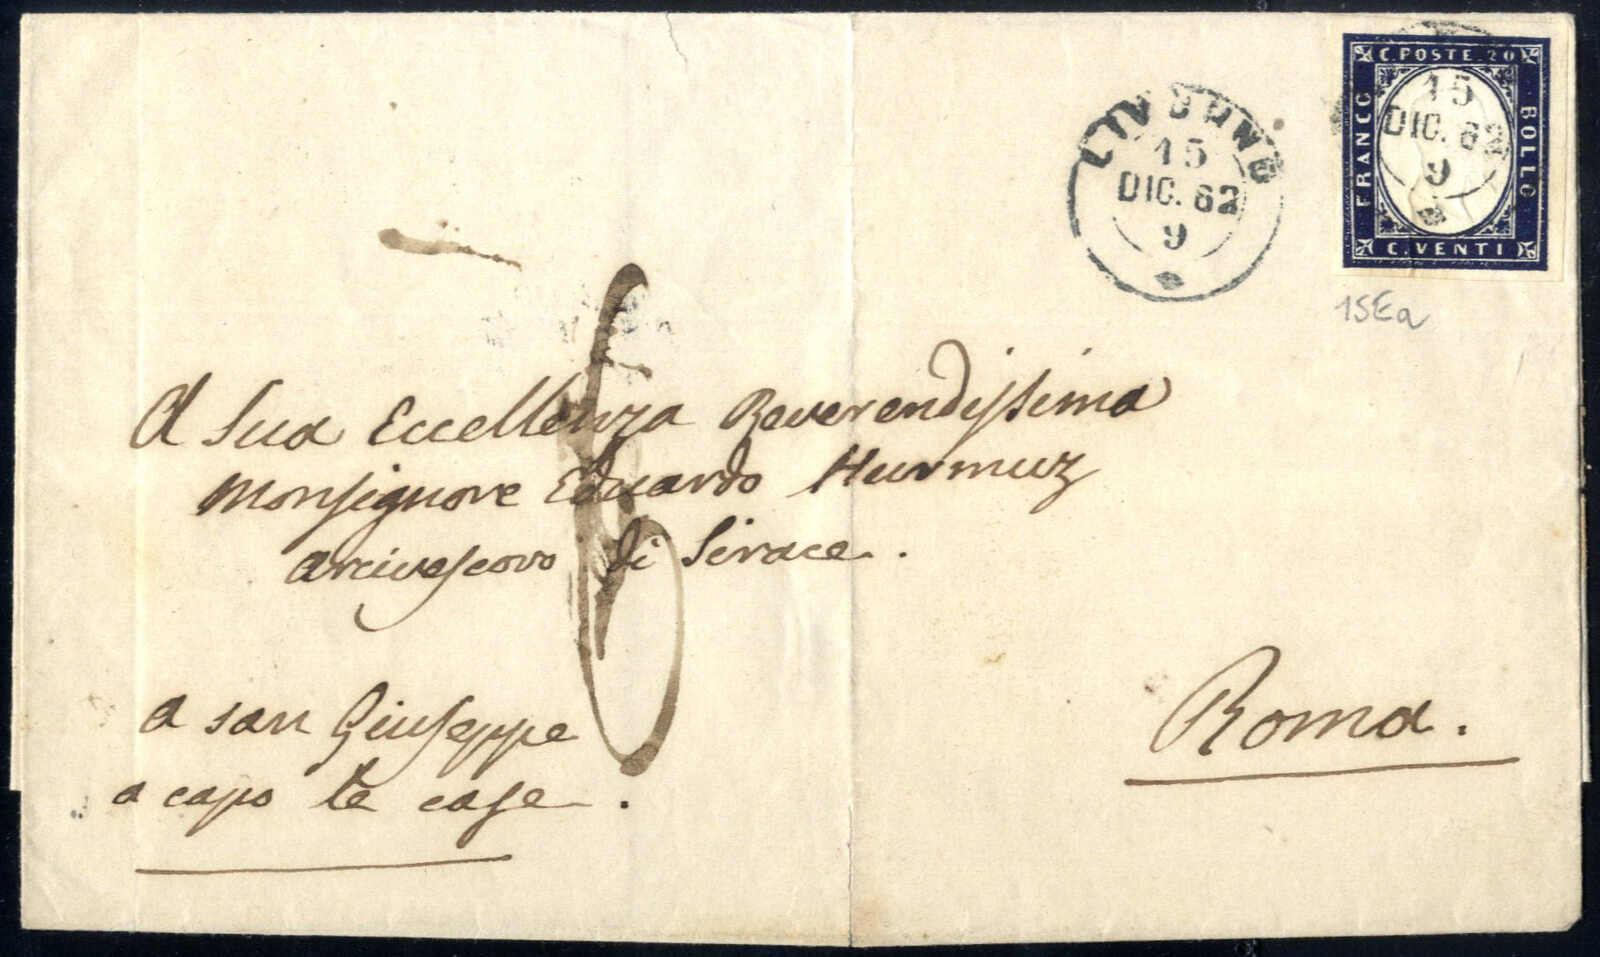 C. POSTE. 20
FRANCO
BOLLO
C. VENTI
15
DIC. 62
9
LIVORNO
15
DIC. 62
9
15Ea
A Sua Eccellenza Reverendissima
Monsignore Eduardo Hurmuz
arcivescovo di Sirace.
a san Giuseppe
a capo le case.
Roma.